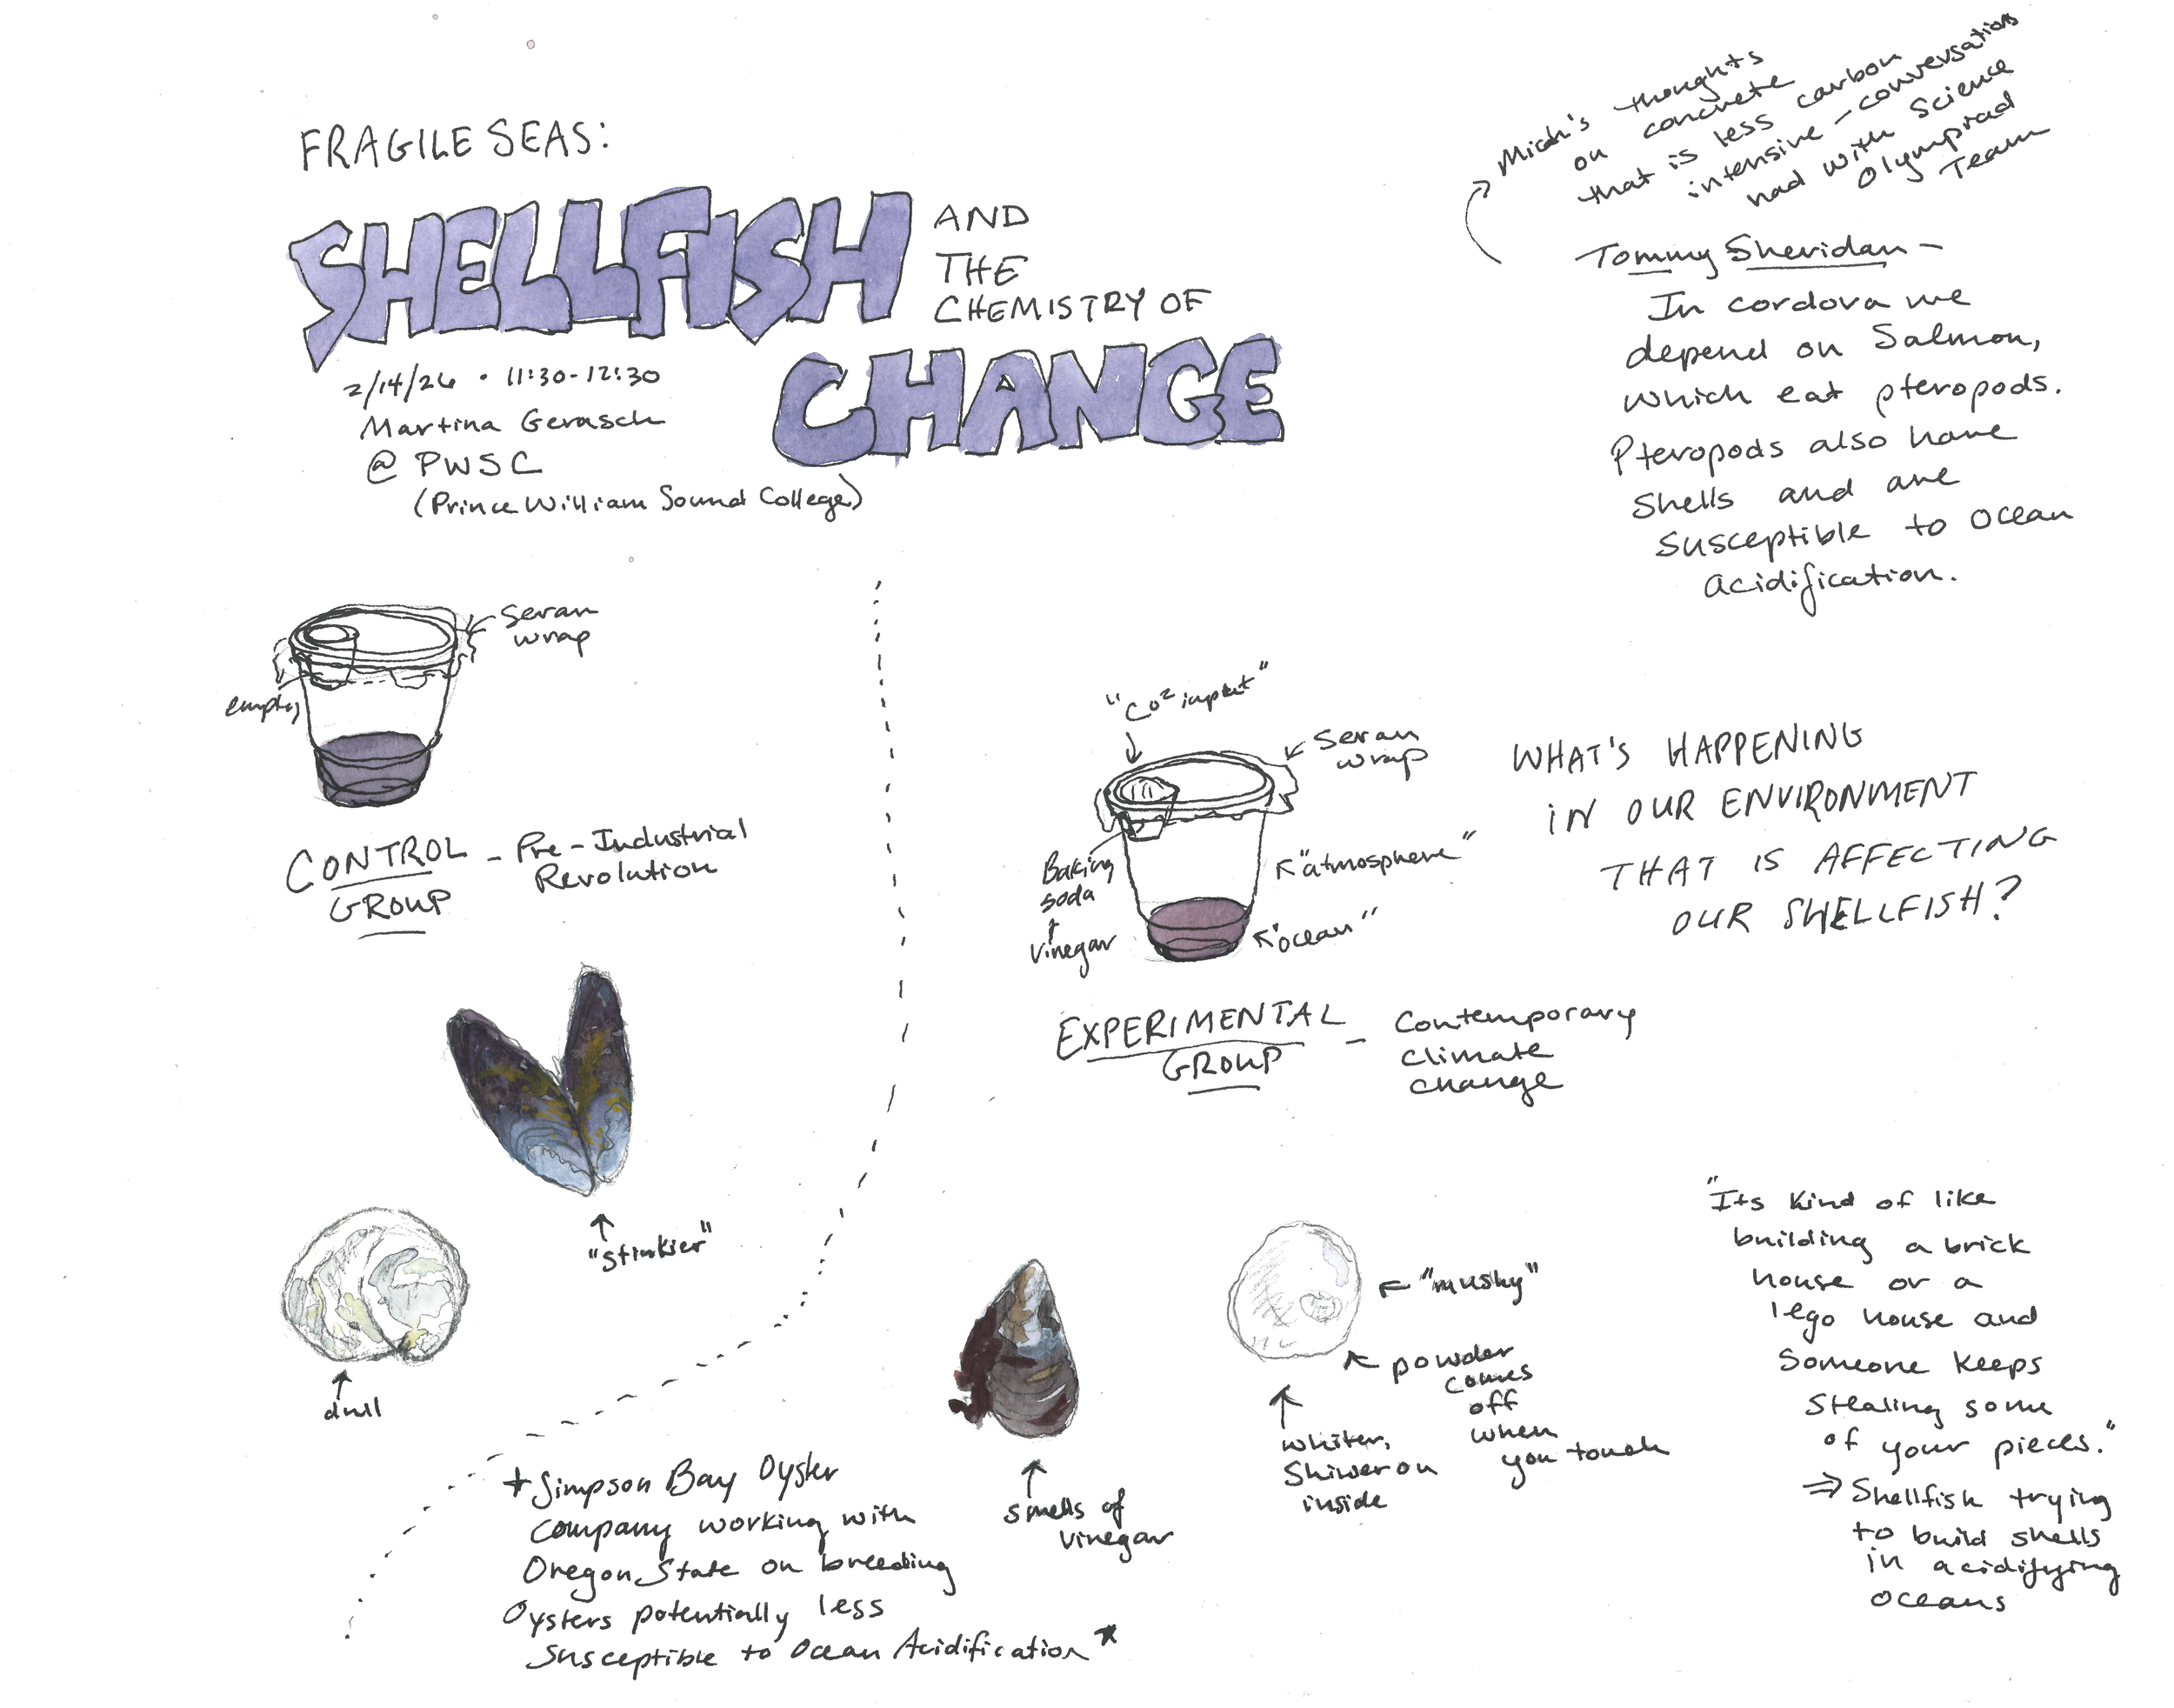 FRAGILE SEAS:
SHELLFISH
AND
THE
CHEMISTRY OF
CHANGE
2/14/26 • 11:30-12:30
Martina Gerasch
@ PWSC
(Prince William Sound College)
Micah's thoughts
on concrete
that is less carbon
intensive - conversations
had with Science
Olympiad
Team
Tommy Sheridan -
In cordova we
depend on Salmon,
which eat pteropods.
Pteropods also have
Shells and are
susceptible to ocean
acidification.
Seran
wrap
empty
CONTROL - Pre-Industrial
GROUP Revolution
"CO2 input"
Seran
wrap
Baking
soda
vinegar
"atmosphere"
"ocean"
EXPERIMENTAL - Contemporary
GROUP climate
change
WHAT'S HAPPENING
IN OUR ENVIRONMENT
THAT IS AFFECTING
OUR SHELLFISH?
"stinkier"
dull
smells of
vinegar
"mushy"
powder
comes
off
when
you touch
whiter,
Shinier on
inside
"Its kind of like
building a brick
house or a
lego house and
Someone keeps
Stealing some
of your pieces."
⇒ Shellfish trying
to build shells
in acidifying
oceans
* Simpson Bay Oyster
company working with
Oregon State on breeding
Oysters potentially less
susceptible to Ocean Acidification *